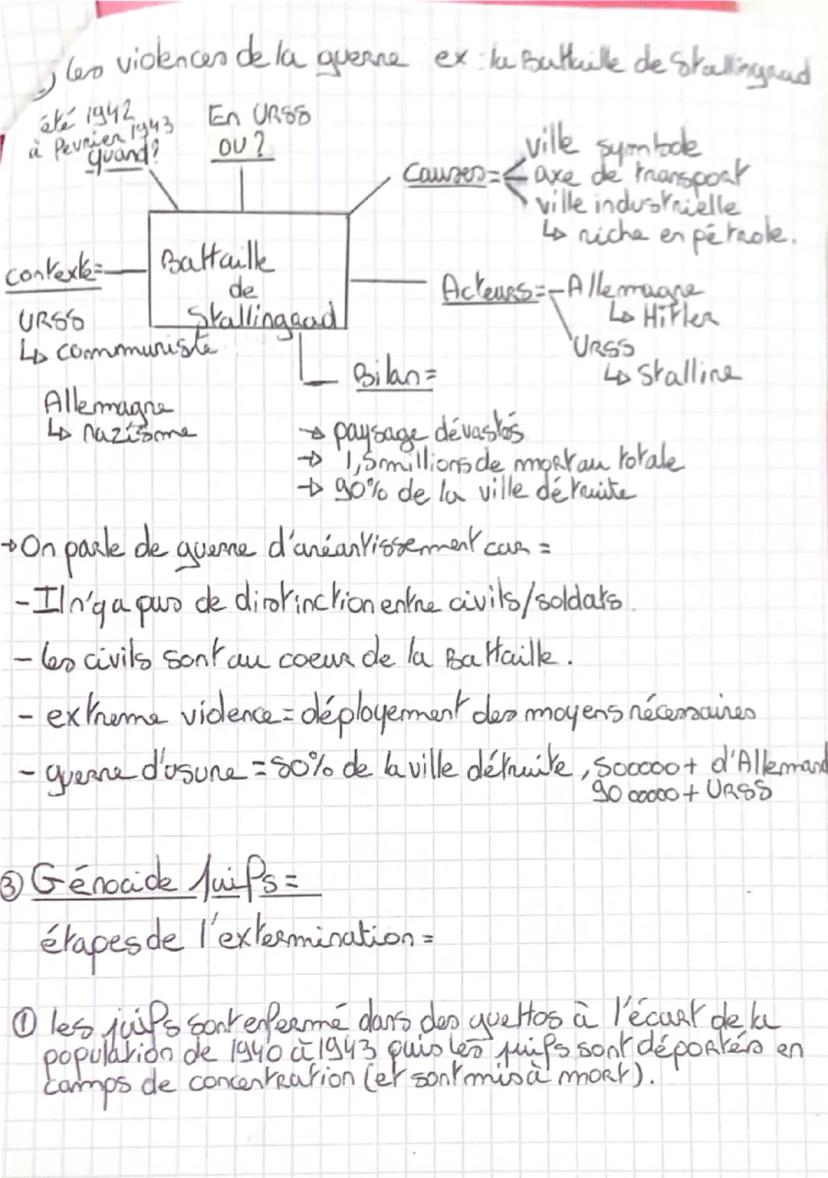 ) les violences de la guerre ex : la Battaille de Stallingrad
été 1942
à fevrier 1943
quand?
En URSS
OU?
Causes =
ville symbole
axe de transport
ville industrielle
↳ riche en pétrole.
contexte =
URSS
↳ communiste
Allemagne
↳ nazisme
Battaille
de
Stallingrad
Acteurs = - Allemagne
↳ Hitler
URSS
↳ Stalline
Bilan =
→ paysage dévastés
→ 1,5 millions de mort au totale
→ 90% de la ville détruite
→ On parle de guerre d'anéantissement car =
- Il n'y a pas de distinction entre civils/soldats.
- les civils sont au coeur de la Battaille.
- extreme violence = déployement des moyens nécessaires
- guerre d'usure = 90% de la ville détruite, 500000+ d'Allemand
900000+ URSS
③ Génocide Juifs =
étapes de l'extermination =
① les juifs sont enfermé dans des guettos à l'écart de la
population de 1940 à 1943 puis les juifs sont déportés en
camps de concentration (et sont mis à mort).